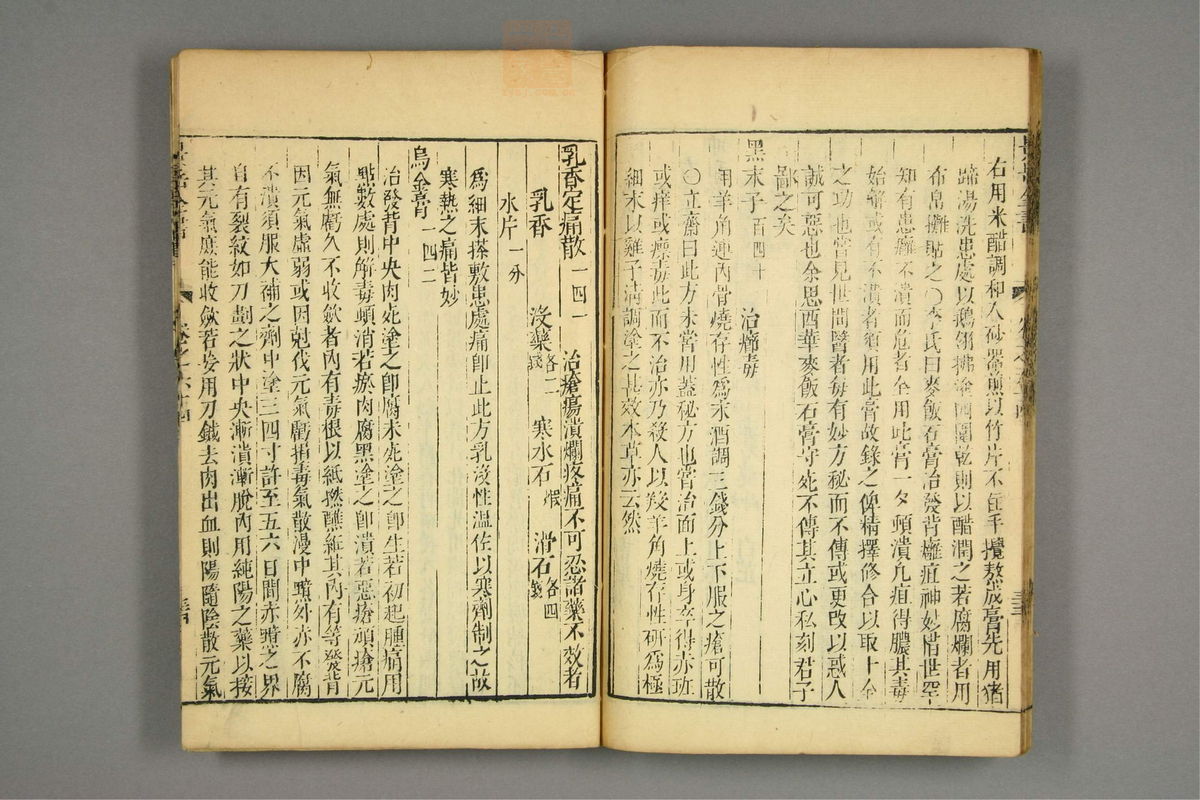 右用米醋調和入砂器煎以竹片不住手攪熬成膏先用猪
蹄湯洗患處以鵝翎拂塗四圍乾則以醋潤之若腐爛者用
布帛攤貼之〇李氏曰麥飯石膏治發背癰疽神妙惜世罕
知有患癰不潰而危者全用此膏一夕頓潰凡疽得膿其毒
始解或有不潰者須用此膏故錄之俾精擇修合以取十全
之功也嘗見世間醫者每有妙方秘而不傳或更改以惑人
誠可惡也余思西華麥飯石膏守死不傳其立心私刻君子
鄙之矣
黑末子 百四十 治癤毒
用羊角連內骨燒存性為末酒調三錢分上下服之瘡可散
〇立齋曰此方未嘗用蓋秘方也嘗治面上或身卒得赤班
或痒或瘭毒此而不治亦乃殺人以羖羊角燒存性研為極
細末以雞子清調塗之甚效本草亦云然
乳香定痛散 一四一 治瘡瘍潰爛疼痛不可忍諸藥不效者
乳香 沒藥 各二錢 寒水石 煅 滑石 各四錢
氷片 一分
為細末搽敷患處痛即止此方乳沒性溫佐以寒劑制之故
寒熱之痛皆妙
烏金膏 一四二
治發背中央肉死塗之即腐未死塗之即生若初起腫痛用
點數處則解毒頓消若瘀肉腐黑塗之即潰若惡瘡頑瘡元
氣無虧久不收歛者內有毒根以紙撚蘸紝其內有等發背
因元氣虛弱或因尅伐元氣虧損毒氣散漫中黯外赤不腐
不潰須服大補之劑中塗三四寸許至五六日間赤黯之界
自有裂紋如刀劃之狀中央漸潰漸脫內用純陽之藥以接
其元氣庶能收歛若妄用刀鍼去肉出血則陽隨陰散元氣